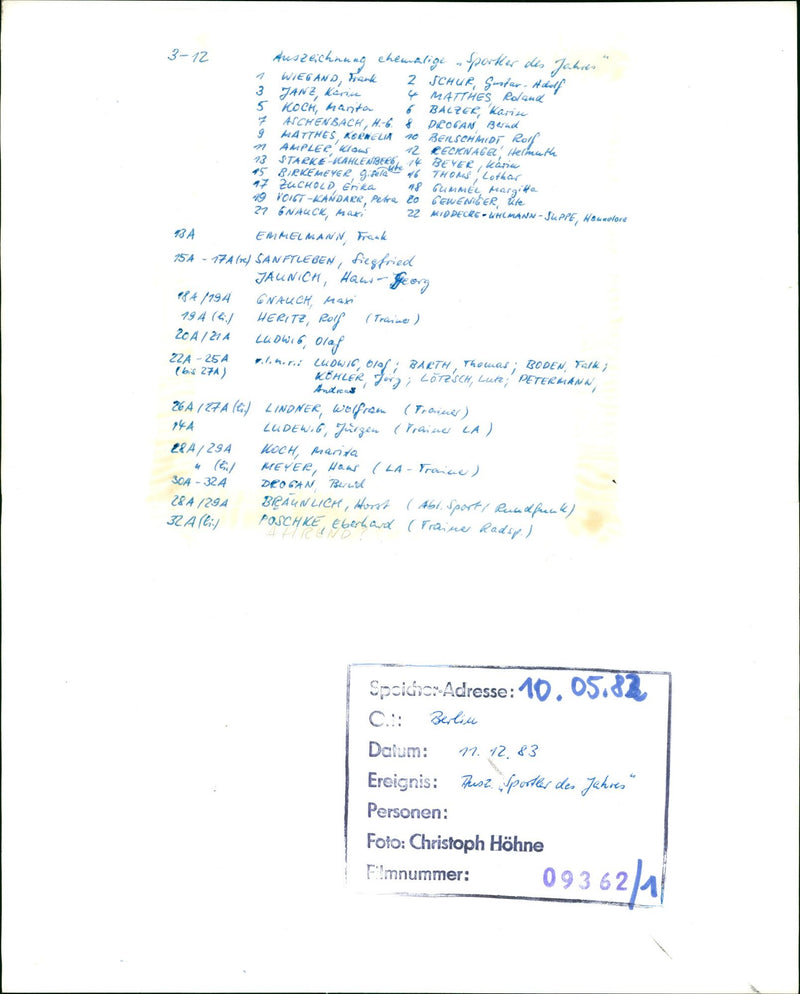 3-12 Auszeichnung ehemalige „Sportler des Jahres“
1 WIEGAND, Frank 2 SCHUR, Gustav-Adolf
3 JANZ, Karin 4 MATTHES, Roland
5 KOCH, Marita 6 BALZER, Karin
7 ASCHENBACH, H-G. 8 DROGAN, Bernd
9 MATTHES, KORNELIA 10 BEILSCHMIDT, Rolf
11 AMPLER, Klaus 12 RECKNAGEL, Helmuth
13 STARKE-KAHLENBERG, Ute 14 BEYER, Karin
15 BIRKEMEYER, 16 THOMS, Lothar
17 ZUCHOLD, Erika 18 GUMMEL, Margitta
19 VOIGT-KANDARR, Petra 20 GEWENIGER, Ute
21 GNAUCK, Maxi 22 MIDDECKE-UHLMANN-SUPPE, Hannelore
13A EMMELMANN, Frank
15A - 17A(re) SANFTLEBEN, Siegfried
JAUNICH, Hans-Georg
18A/19A GNAUCH, Maxi
19A (li.) HERITZ, Rolf (Trainer)
20A/21A LUDWIG, Olaf
22A - 25A v.l.n.r.: LUDWIG, Olaf; BARTH, Thomas; BODEN, Falk;
(bis 27A) KÖHLER, Jörg; LÖTZSCH, Lutz; PETERMANN,
Andreas
26A/27A (li) LINDNER, Wolfram (Trainer)
14A LUDEWIG, Jürgen (Trainer LA)
28A/29A KOCH, Marita
" (li) MEYER, Hans (LA-Trainer)
30A-32A DROGAN, Bernd
28A/29A BRÄUNLICH, Horst (Abt. Sport/Rundfunk)
32A (li) POSCHKE, Eberhard (Trainer Radsp.)
AHREND?
Speicher-Adresse: 10.05.82
O.: Berlin
Datum: 11.12.83
Ereignis: Ausz. „Sportler des Jahres“
Personen:
Foto: Christoph Höhne
Filmnummer: 09362/1